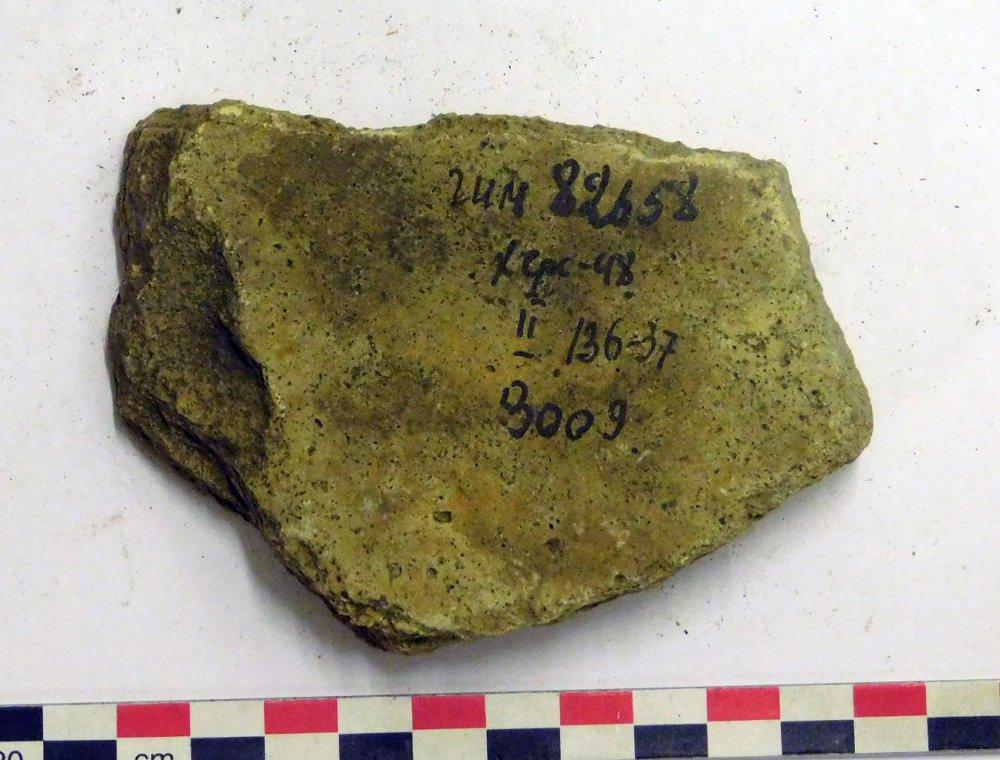 гим 82658
Херс-48
II 136-37
3009
cm